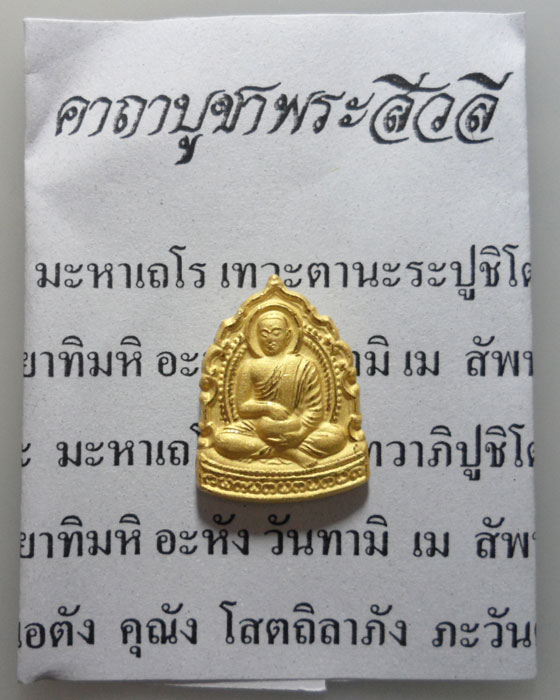 คาถาบูชาพระสีวลี
มะหาเถโร เทวะตานะระปูชิโต
ยาทิมหิ อะ มิ เม สัพ
มะหาเถ ทวาภิปูชิโต
ยาทิมหิ อะหัง วันทามิ เม สัพ
คุณัง โสตถิลาภัง ภะวัน